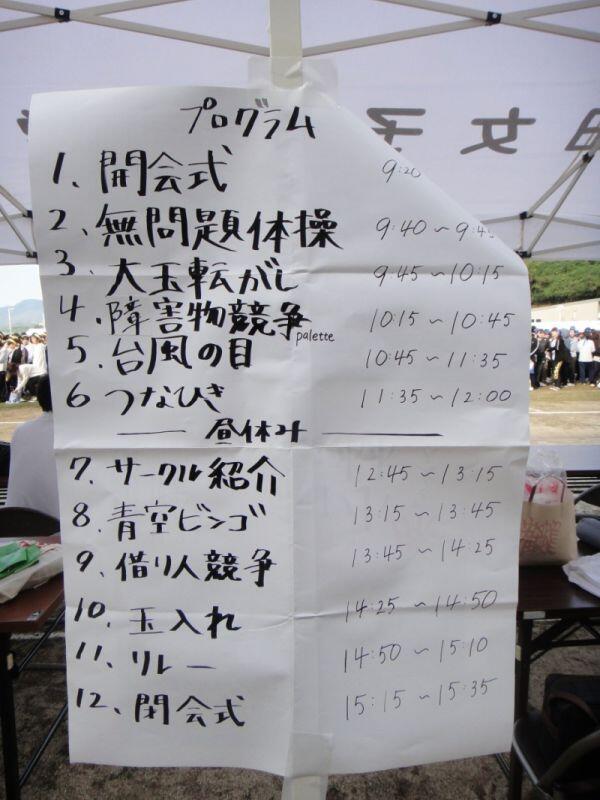 プログラム
1、開会式 9:20
2、無問題体操 9:40〜9:45
3、大玉転がし 9:45〜10:15
4、障害物競争 10:15〜10:45
palette
5、台風の目 10:45〜11:35
6 つなひき 11:35〜12:00
昼休み
7、サークル紹介 12:45〜13:15
8、青空ビンゴ 13:15〜13:45
9、借り人競争 13:45〜14:25
10、玉入れ 14:25〜14:50
11、リレー 14:50〜15:10
12、閉会式 15:15〜15:35